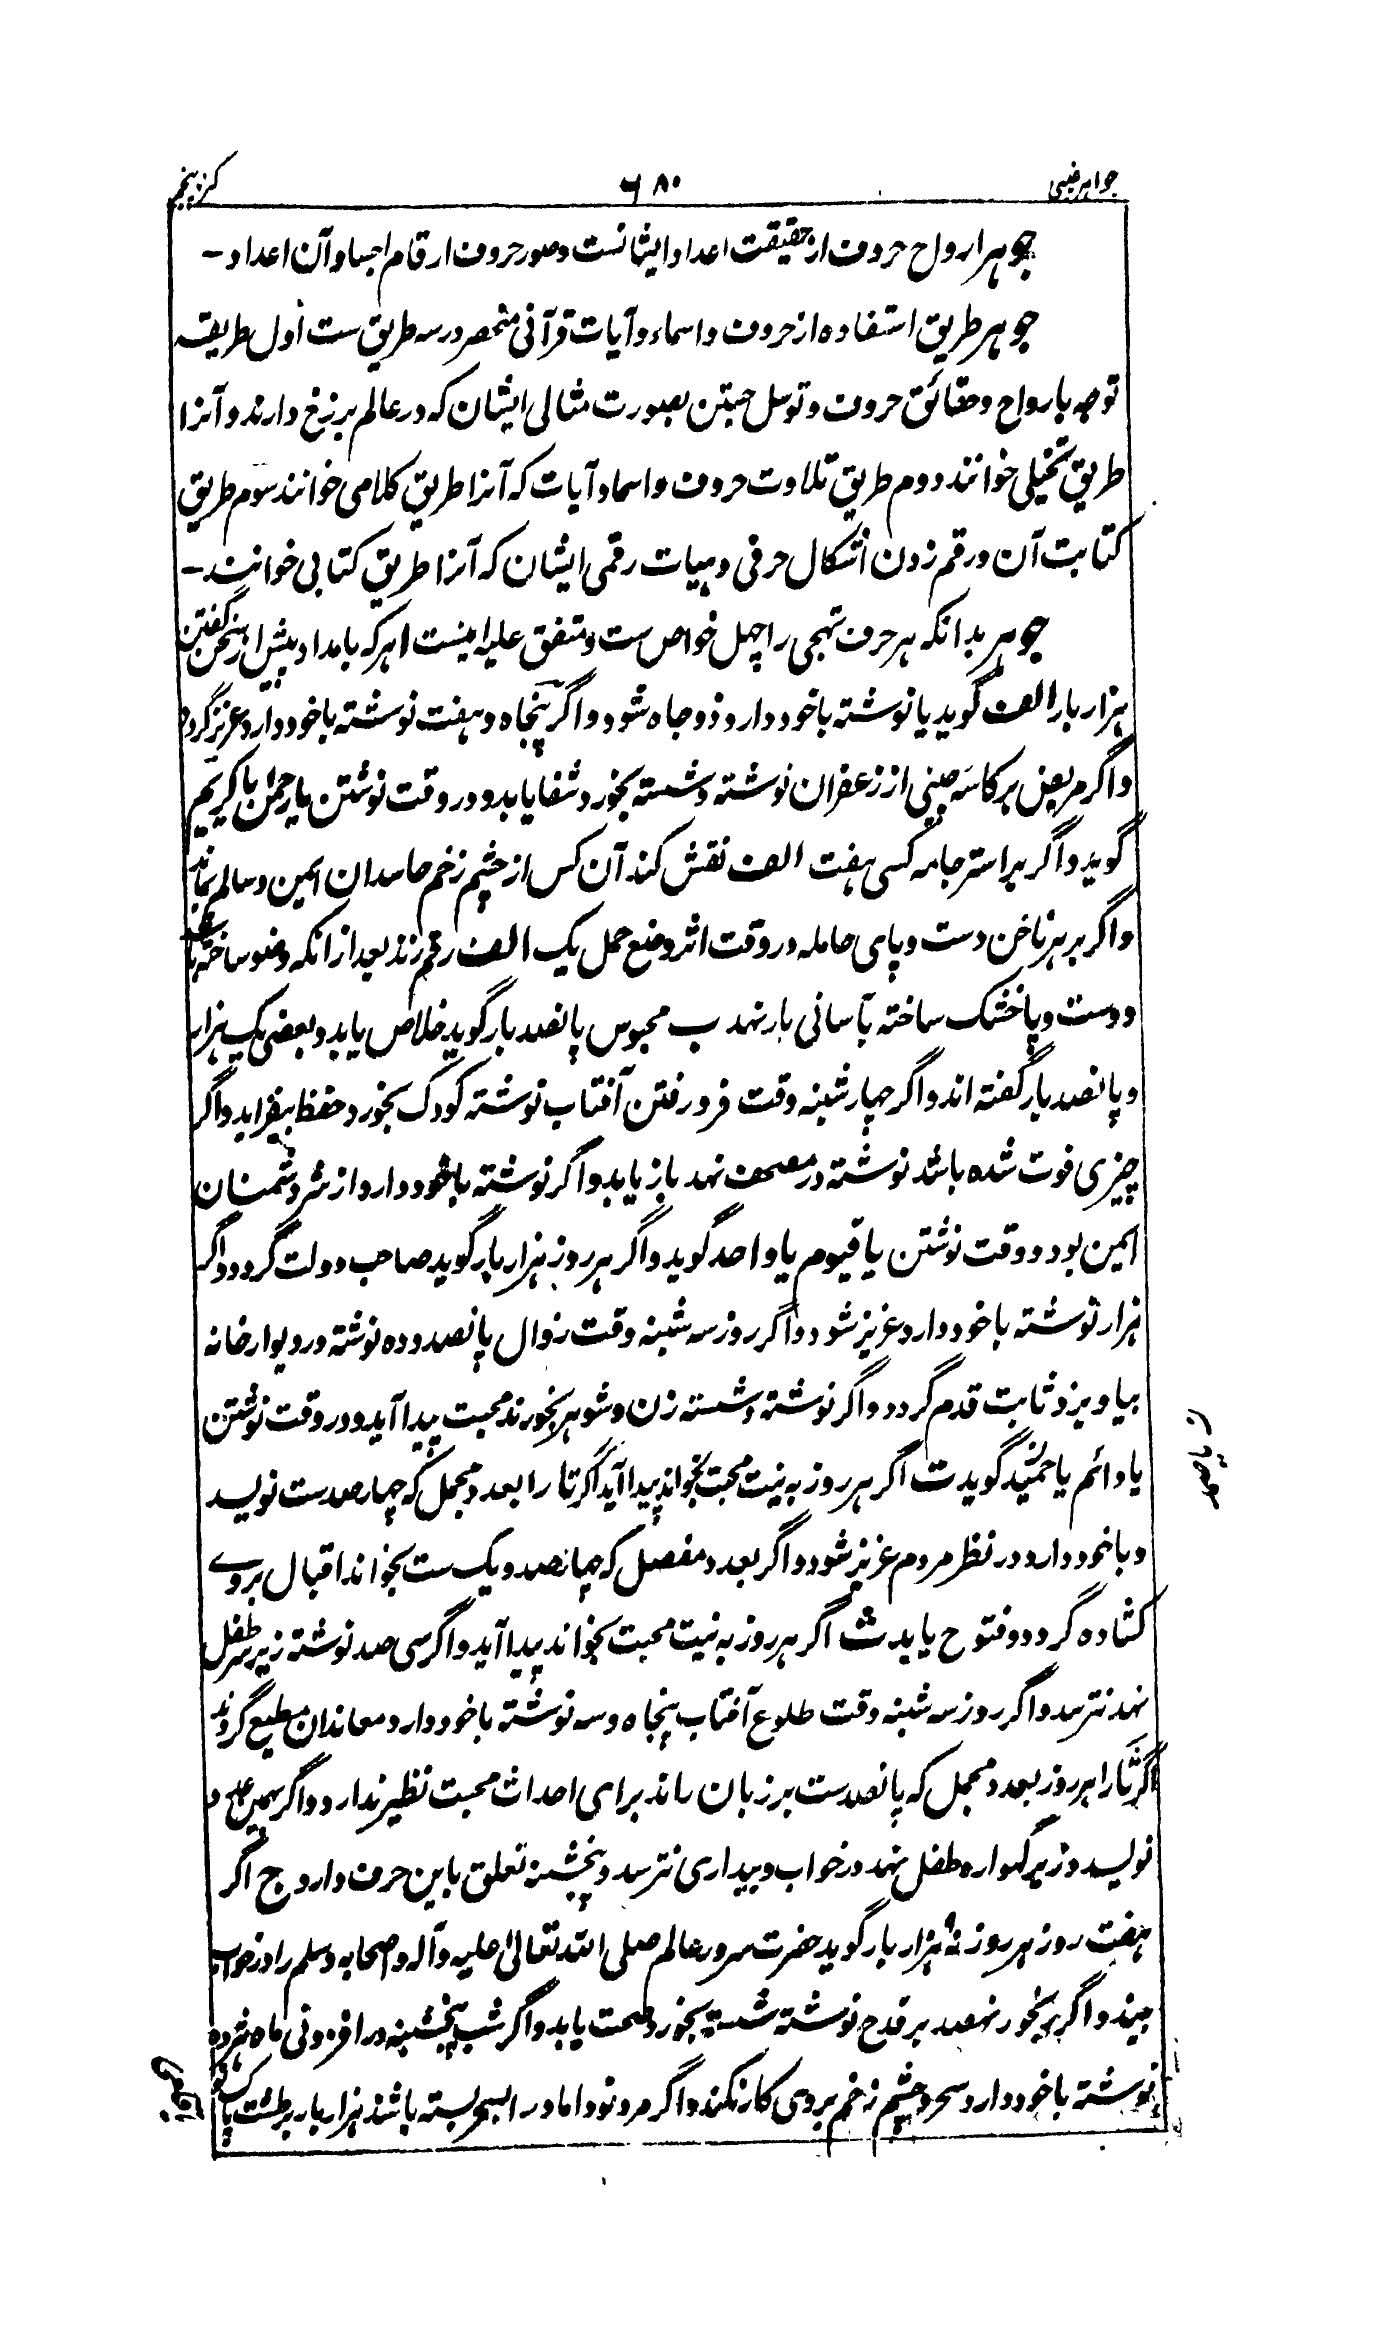 جواهر غیبی
۶۸۰
کنز پنجم
جوهر ارواح حروف از حقیقت اعداد ایشانست و صور حروف ارقام اجساد آن اعداد -
جوهر طریق استفاده از حروف و اسماء و آیات قرآنی منحصر در سه طریق ست اول طریقه
توجه بارواح و حقائق حروف و توسل جستن بصورت مثالی ایشان که در عالم برزخ دارند و آنرا
طریق تخیلی خوانند دوم طریق تلاوت حروف و اسما و آیات که آنرا طریق کلامی خوانند سوم طریق
کتابت آن و رقم زدن اشکال حرفی و هیات رقمی ایشان که آنرا طریق کتابی خوانند -
جوهر بدانکه هر حرف تهجی را چهل خواص ست و متفق علیه اینست ا هر که بامداد پیش از سخن گفتن
هزار بار الف گوید یا نوشته باخود دارد ذو جاه شود و اگر پنجاه و هفت نوشته باخود دارد عزیز گردد
و اگر مریض بر کاسه چینی از زعفران نوشته و شسته بخورد شفا یابد و در وقت نوشتن یا رحمن یا کریم
گوید و اگر بر استر جامه کسی هفت الف نقش کند آن کس از چشم زخم حاسدان ایمن و سالم بماند
و اگر بر هر ناخن دست و پای حامله در وقت اثر وضع حمل یک الف رقم زند بعد از انکه وضو ساخته باشد
و دست و پا خشک ساخته بآسانی بار نهد ب محبوس پانصد بار گوید خلاص یابد و بعضی یک هزار
و پانصد بار گفته اند و اگر چهار شنبه وقت فرو رفتن آفتاب نوشته کودک بخورد حفظ بیفزاید و اگر
چیزی فوت شده باشد نوشته در مصحف نهد باز یابد و اگر نوشته باخود دارد از شر دشمنان
ایمن بود و وقت نوشتن یا قیوم یا واحد گوید و اگر هر روز هزار بار گوید صاحب دولت گردد و اگر
هزار نوشته باخود دارد عزیز شود و اگر روز سه شنبه وقت زوال پانصد و ده نوشته در دیوار خانه
بیاویزد ثابت قدم گردد و اگر نوشته و شسته زن و شوهر بخورند محبت پیدا آید و در وقت نوشتن
یا دائم یا حمید گوید ت اگر هر روز به نیت محبت بخواند پیدا آید اگر تا را بعدد مجمل که چهار صد ست نویسد
و باخود دارد در نظر مردم عزیز شود و اگر بعدد مفصل که چهار صد و یک ست بخواند اقبال بر وے
کشاده گردد و فتوح یابد ث اگر هر روز به نیت محبت بخواند پیدا آید و اگر سی صد نوشته زیر سر طفل
نهد نترسد و اگر روز سه شنبه وقت طلوع آفتاب پنجاه و سه نوشته باخود دارد معاندان مطیع گردند
اگر ثا را هر روز بعدد مجمل که پانصد ست بر زبان راند برای احداث محبت نظیر ندارد و اگر بهمین عدد
نویسد و زیر گهواره طفل نهد در خواب و بیداری نترسد و پنجشنبه تعلق باین حرف دارد ج اگر
هفت روز هر روز نه هزار بار گوید حضرت سرور عالم صلی الله تعالی علیه و آله و اصحابه و سلم را در خواب
بیند و اگر رنجور نهصد بر قدح نوشته شسته بخورد صحت یابد و اگر شب پنجشنبه در افزونی ماه نوزده
نوشته باخود دارد سحر و چشم زخم بر وی کار نکند و اگر مرد نو داماد را بسحر بسته باشند هزار بار بر طشت پاک